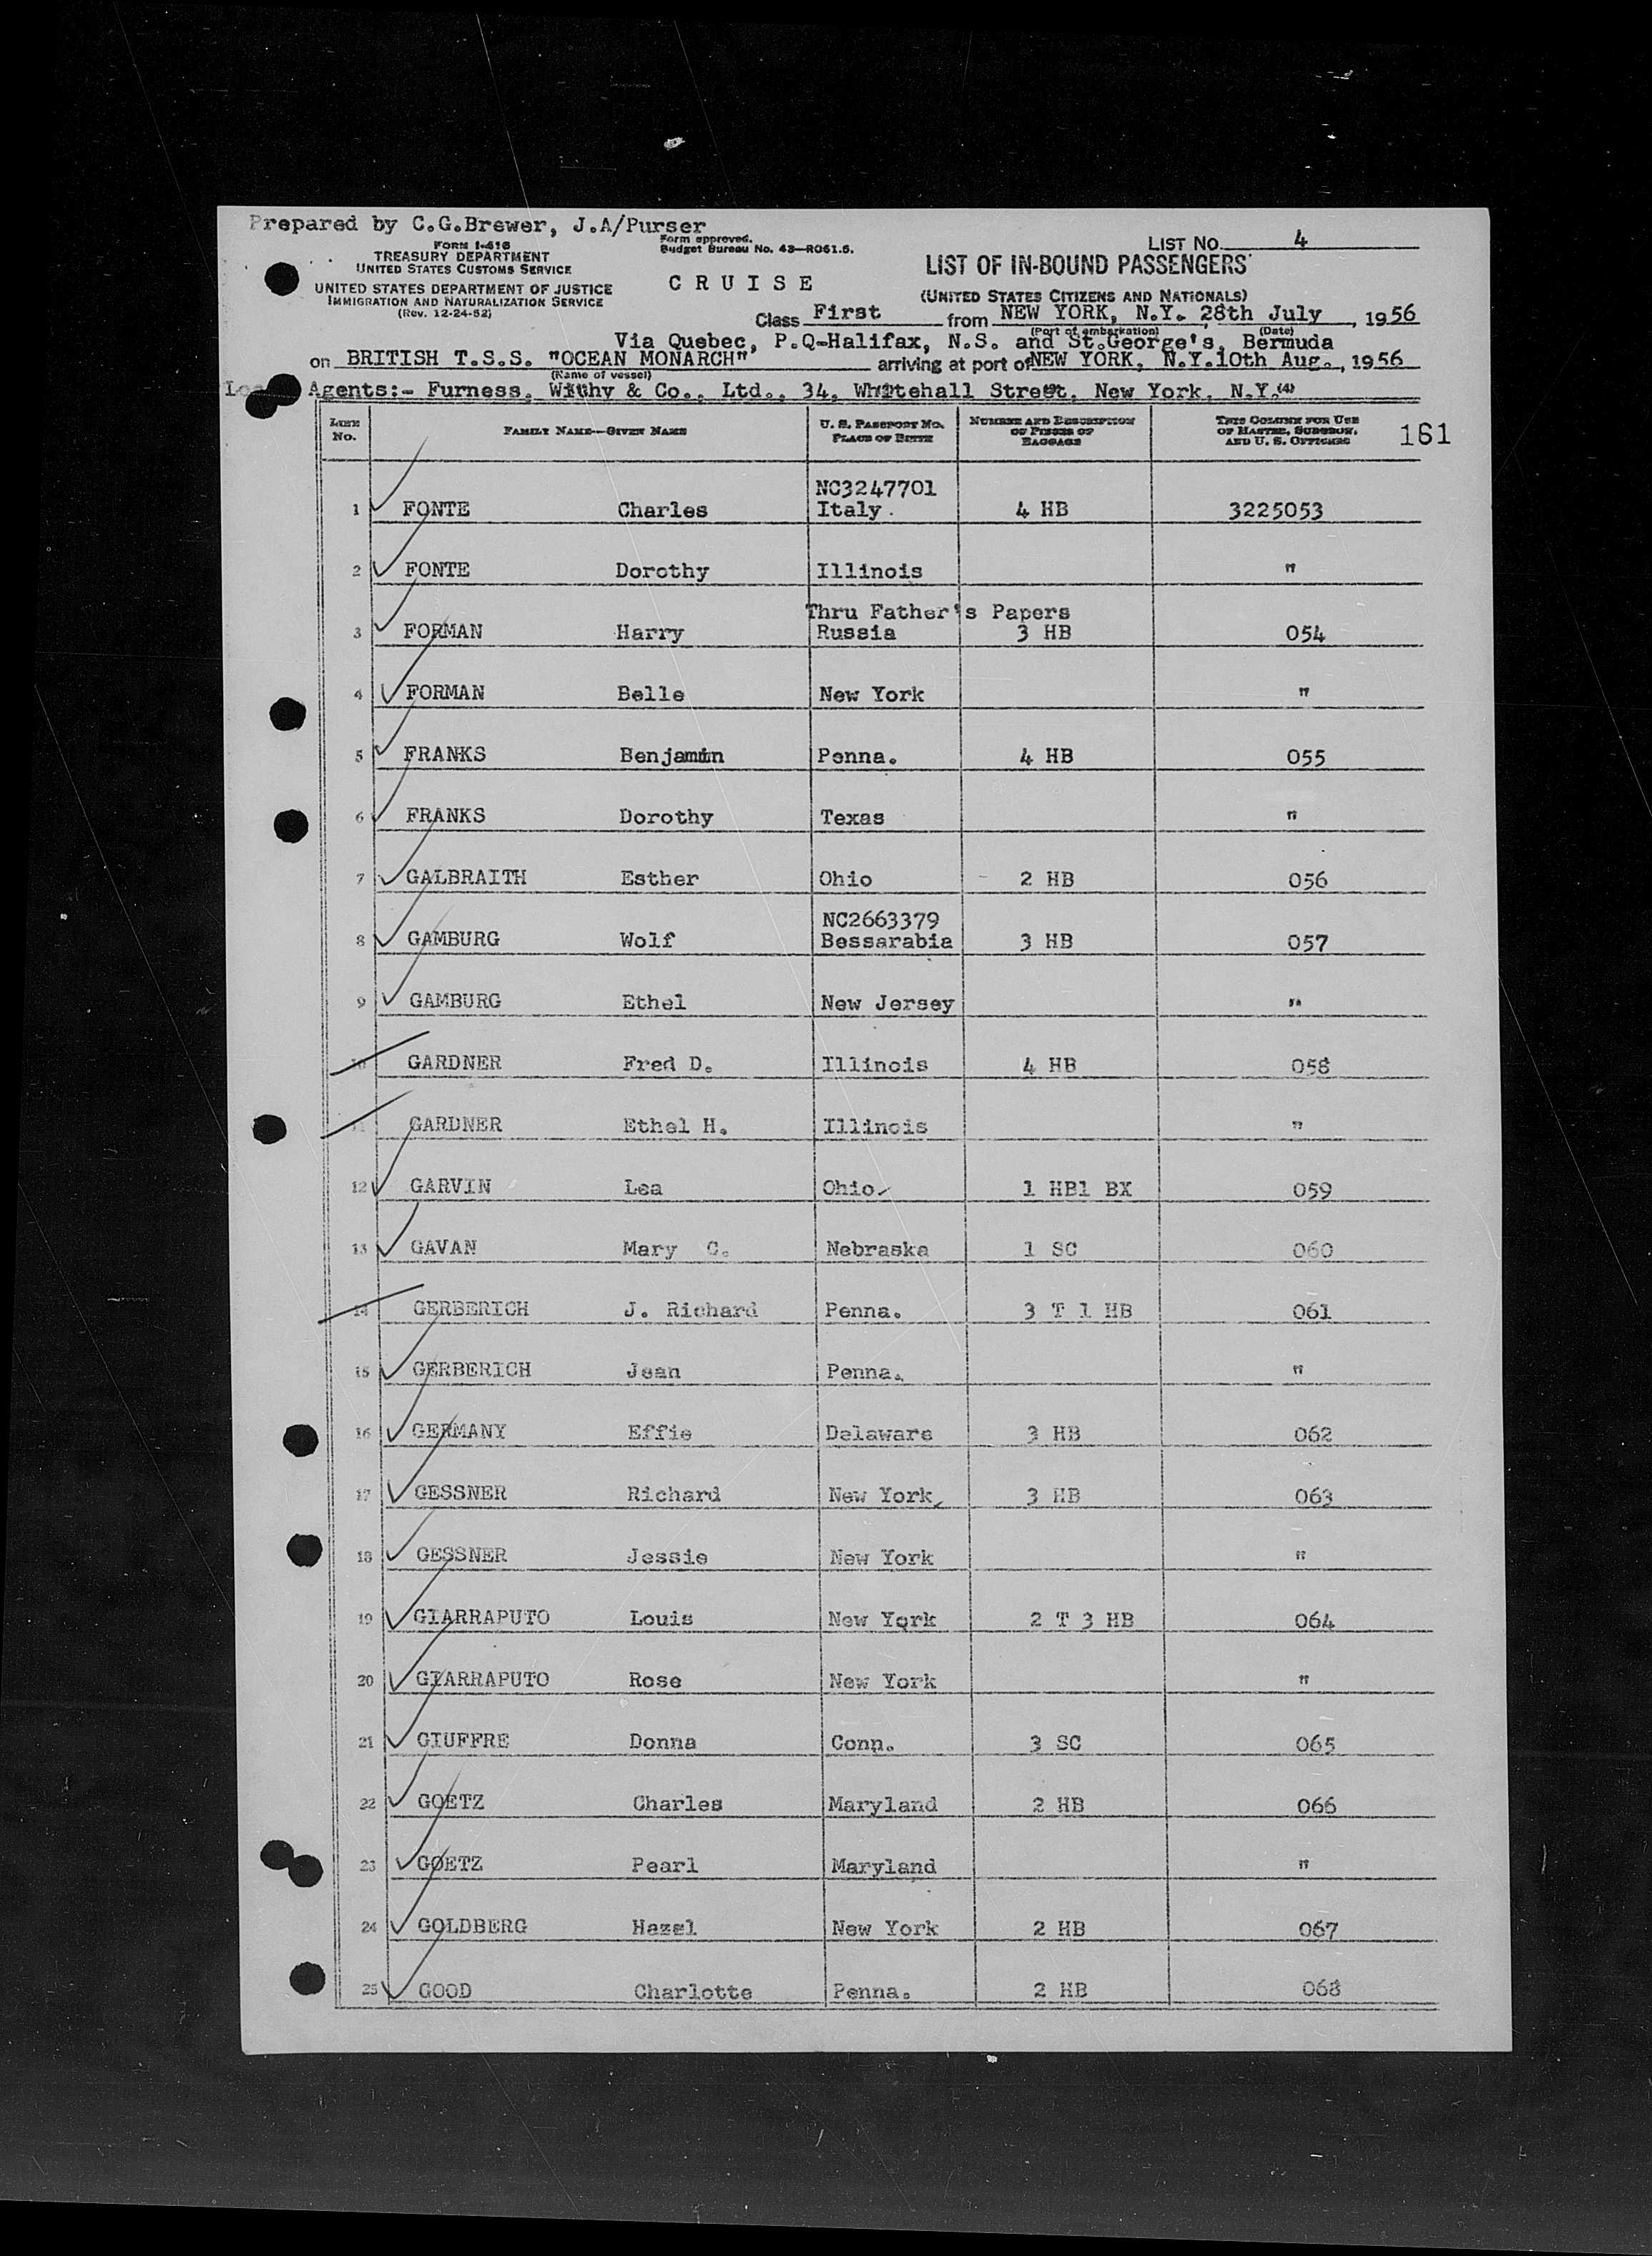 Prepared by C.G.Brewer, J.A/Purser
FORM I-418
TREASURY DEPARTMENT
UNITED STATES CUSTOMS SERVICE
UNITED STATES DEPARTMENT OF JUSTICE
IMMIGRATION AND NATURALIZATION SERVICE
(Rev. 12-24-52)
Form approved.
Budget Bureau No. 43—R061.5.
CRUISE
LIST No. 4
LIST OF IN-BOUND PASSENGERS
(UNITED STATES CITIZENS AND NATIONALS)
Class First from NEW YORK, N.Y. 28th July, 1956
(Port of embarkation) (Date)
Via Quebec, P.Q-Halifax, N.S. and St.George's, Bermuda
on BRITISH T.S.S. "OCEAN MONARCH" arriving at port of NEW YORK, N.Y. 10th Aug., 1956
(Name of vessel)
Agents:- Furness, Withy & Co., Ltd., 34, Whitehall Street, New York, N.Y. (4)
LINE No. FAMILY NAME—GIVEN NAME U. S. PASSPORT NO. PLACE OF BIRTH NUMBER AND DESCRIPTION OF PIECES OF BAGGAGE THIS COLUMN FOR USE OF MASTER, SURGEON, AND U. S. OFFICERS 161
NC3247701
1 FONTE Charles Italy 4 HB 3225053
2 FONTE Dorothy Illinois "
Thru Father's Papers
3 FORMAN Harry Russia 3 HB 054
4 FORMAN Belle New York "
5 FRANKS Benjamin Penna. 4 HB 055
6 FRANKS Dorothy Texas "
7 GALBRAITH Esther Ohio 2 HB 056
NC2663379
8 GAMBURG Wolf Bessarabia 3 HB 057
9 GAMBURG Ethel New Jersey "
10 GARDNER Fred D. Illinois 4 HB 058
11 GARDNER Ethel H. Illinois "
12 GARVIN Lea Ohio 1 HB1 BX 059
13 GAVAN Mary C. Nebraska 1 SC 060
14 GERBERICH J. Richard Penna. 3 T 1 HB 061
15 GERBERICH Jean Penna. "
16 GERMANY Effie Delaware 3 HB 062
17 GESSNER Richard New York 3 HB 063
18 GESSNER Jessie New York "
19 GIARRAPUTO Louis New York 2 T 3 HB 064
20 GIARRAPUTO Rose New York "
21 GIUFFRE Donna Conn. 3 SC 065
22 GOETZ Charles Maryland 2 HB 066
23 GOETZ Pearl Maryland "
24 GOLDBERG Hazel New York 2 HB 067
25 GOOD Charlotte Penna. 2 HB 068